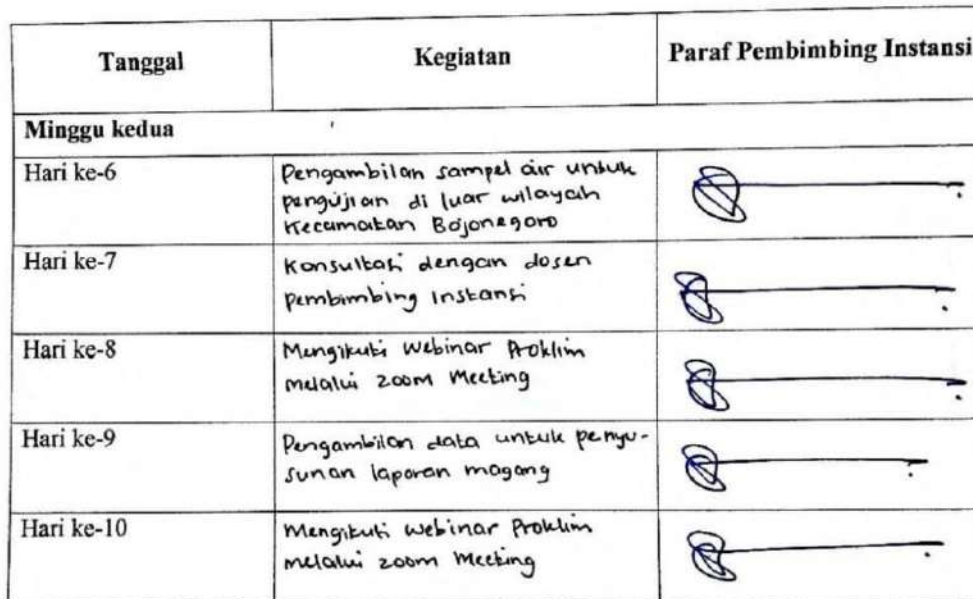 Tanggal Kegiatan Paraf Pembimbing Instansi
Minggu kedua
Hari ke-6
Pengambilan sampel air untuk
pengujian di luar wilayah
Kecamatan Bojonegoro
Hari ke-7
Konsultasi dengan dosen
pembimbing Instansi
Hari ke-8
Mengikuti Webinar Proklim
melalui zoom Meeting
Hari ke-9
Pengambilan data untuk penyu-
sunan laporan magang
Hari ke-10
Mengikuti Webinar Proklim
melalui zoom Meeting